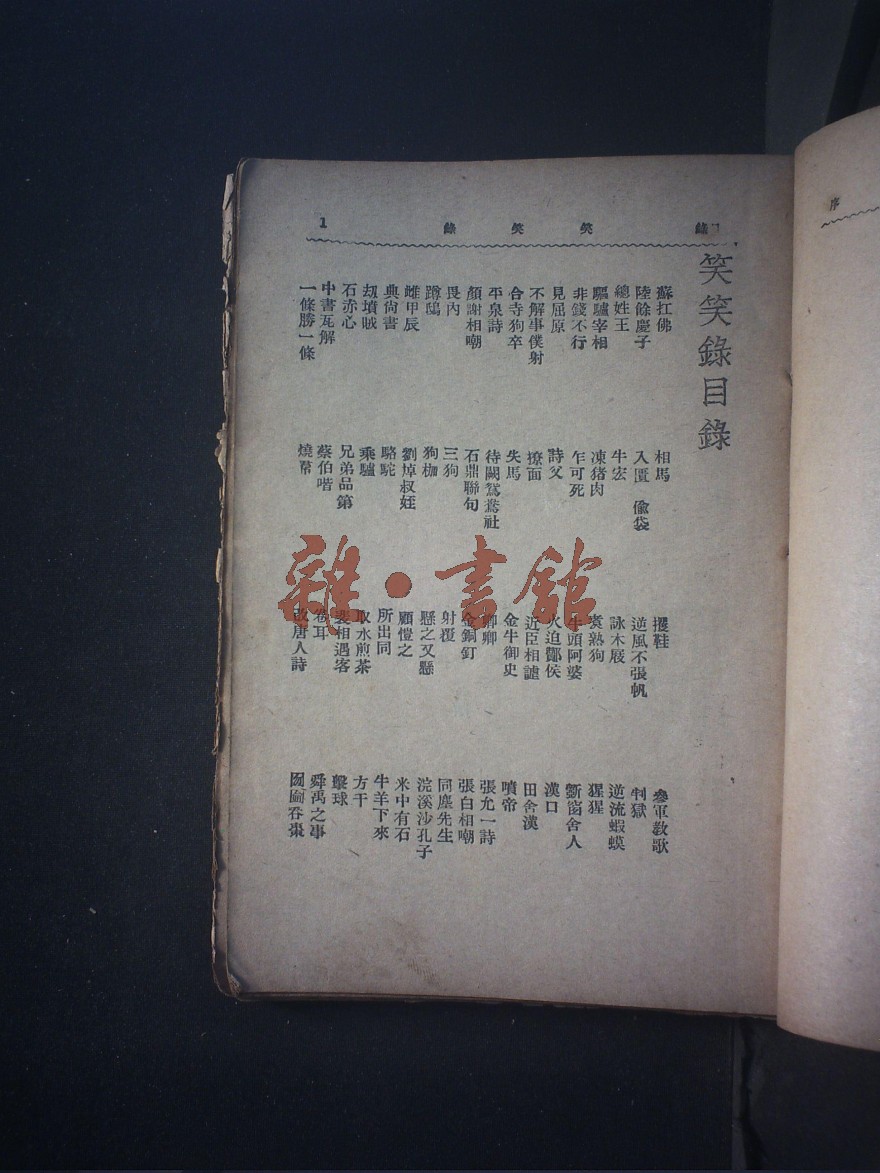 錄 笑 笑 錄 1
笑笑錄目錄
蘇扛佛
陸餘慶子
總姓王
驅驢宰相
非錢不行
見屈原
不解事僕射
合寺狗卒
平泉詩
顏謝相嘲
畏內
蹲鴟
雌甲辰
典尙書
刼墳賊
石赤心
中書瓦解
一條勝一條
相馬
入匱 偸袋
牛宏
凍猪肉
乍可死
詩父
撩面
失馬
待闕鴛鴦社
石鼎聯句
三狗
狗枷
劉焯叔姪
駱駝
乘驢
兄弟品第
蔡伯喈
燒幣
擭鞋
逆風不張帆
詠木屐
熟狗
牛頭阿婆
火迫酇侯
近臣相謔
金牛御史
卿卿
金銅釘
射覆
懸之又懸
顧愷之
所出同
取水煎茶
裴相遇客
卷耳
改唐人詩
參軍敎歌
判獄
逆流蝦蟆
猩猩
斵窗舍人
漢口
田舍漢
噴帝
張允一詩
張白相嘲
同塵先生
浣溪沙孔子
米中有石
牛羊下來
方干
擊球
舜禹之事
囫圇吞棗
序
雜·書館